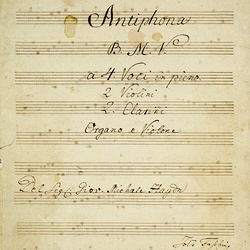 Antiphona
B. M. V.
a 4 Voci in pieno
2 Violini
2. Clarini
Organo e Violone
Del Sig. Giov. Michele Haydn